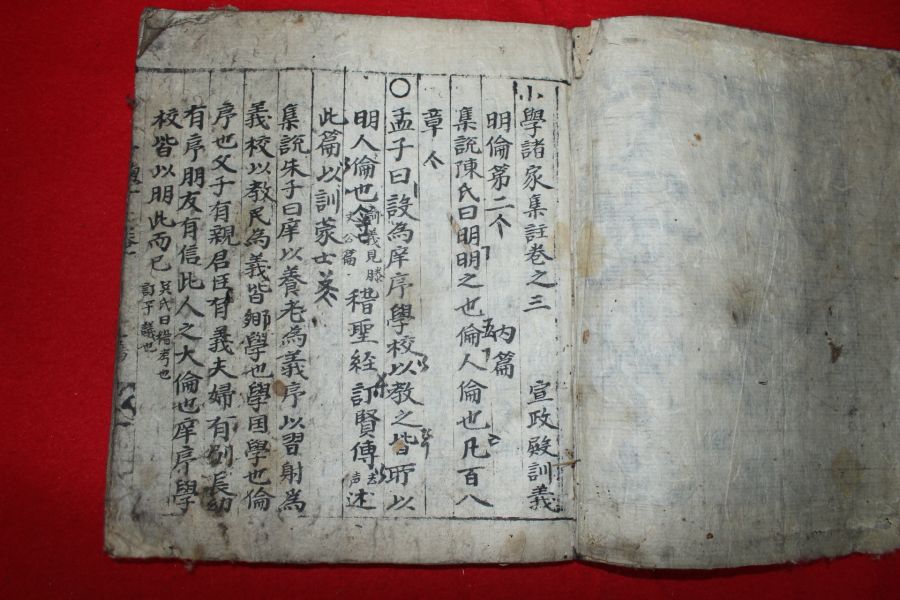 小學諸家集註卷之三 宣政殿訓義
明倫第二 內篇
集說陳氏曰明明之也倫人倫也凡百八
章
○孟子曰設爲庠序學校以敎之皆所以
明人倫也 義見滕文公篇 稽聖經訂賢傳 去声 述
此篇以訓蒙士
集說朱子曰庠以養老爲義序以習射爲
義校以敎民爲義皆鄉學也學国學也倫
序也父子有親君臣有義夫婦有別長幼
有序朋友有信此人之大倫也庠序學
校皆以明此而已 吳氏曰稽考也訂平議也